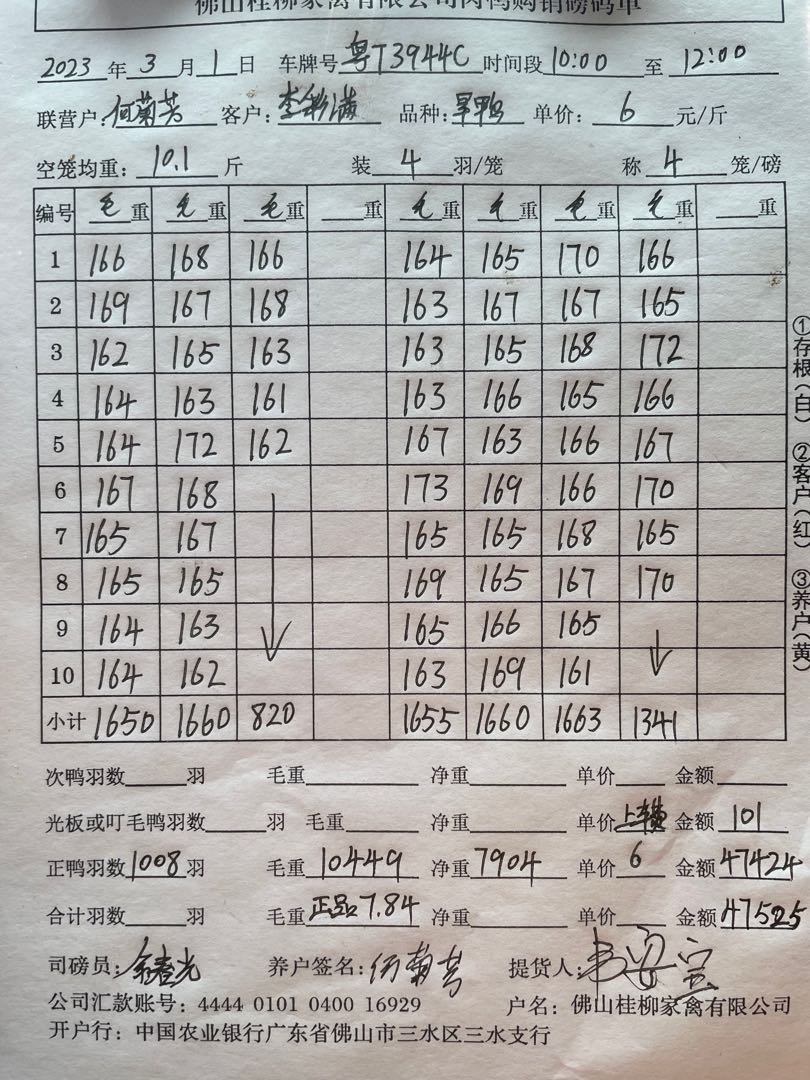 佛山桂柳家禽有限公司肉鸭购销磅码单
2023 年 3 月 1 日 车牌号 粤T3944C 时间段 10:00 至 12:00
联营户: 何菊芳 客户: 李彩满 品种: 旱鸭 单价: 6 元/斤
空笼均重: 10.1 斤 装 4 羽/笼 称 4 笼/磅
编号 毛重 毛重 毛重 重 毛重 毛重 毛重 毛重 重
1 166 168 166 164 165 170 166
2 169 167 168 163 167 167 165
3 162 165 163 163 165 168 172
4 164 163 161 163 166 165 166
5 164 172 162 167 163 166 167
6 167 168 173 169 166 170
7 165 167 165 165 168 165
8 165 165 169 165 167 170
9 164 163 165 166 165
10 164 162 163 169 161
小计 1650 1660 820 1655 1660 1663 1341
次鸭羽数 羽 毛重 净重 单价 金额
光板或叮毛鸭羽数 羽 毛重 净重 单价 上车费 金额 101
正鸭羽数 1008 羽 毛重 10449 净重 7904 单价 6 金额 47424
合计羽数 羽 毛重 正品7.84 净重 单价 金额 47525
司磅员: 余春光 养户签名: 何菊芳 提货人:
公司汇款账号: 4444 0101 0400 16929 户名: 佛山桂柳家禽有限公司
开户行: 中国农业银行广东省佛山市三水区三水支行
①存根(白) ②客户(红) ③养户(黄)